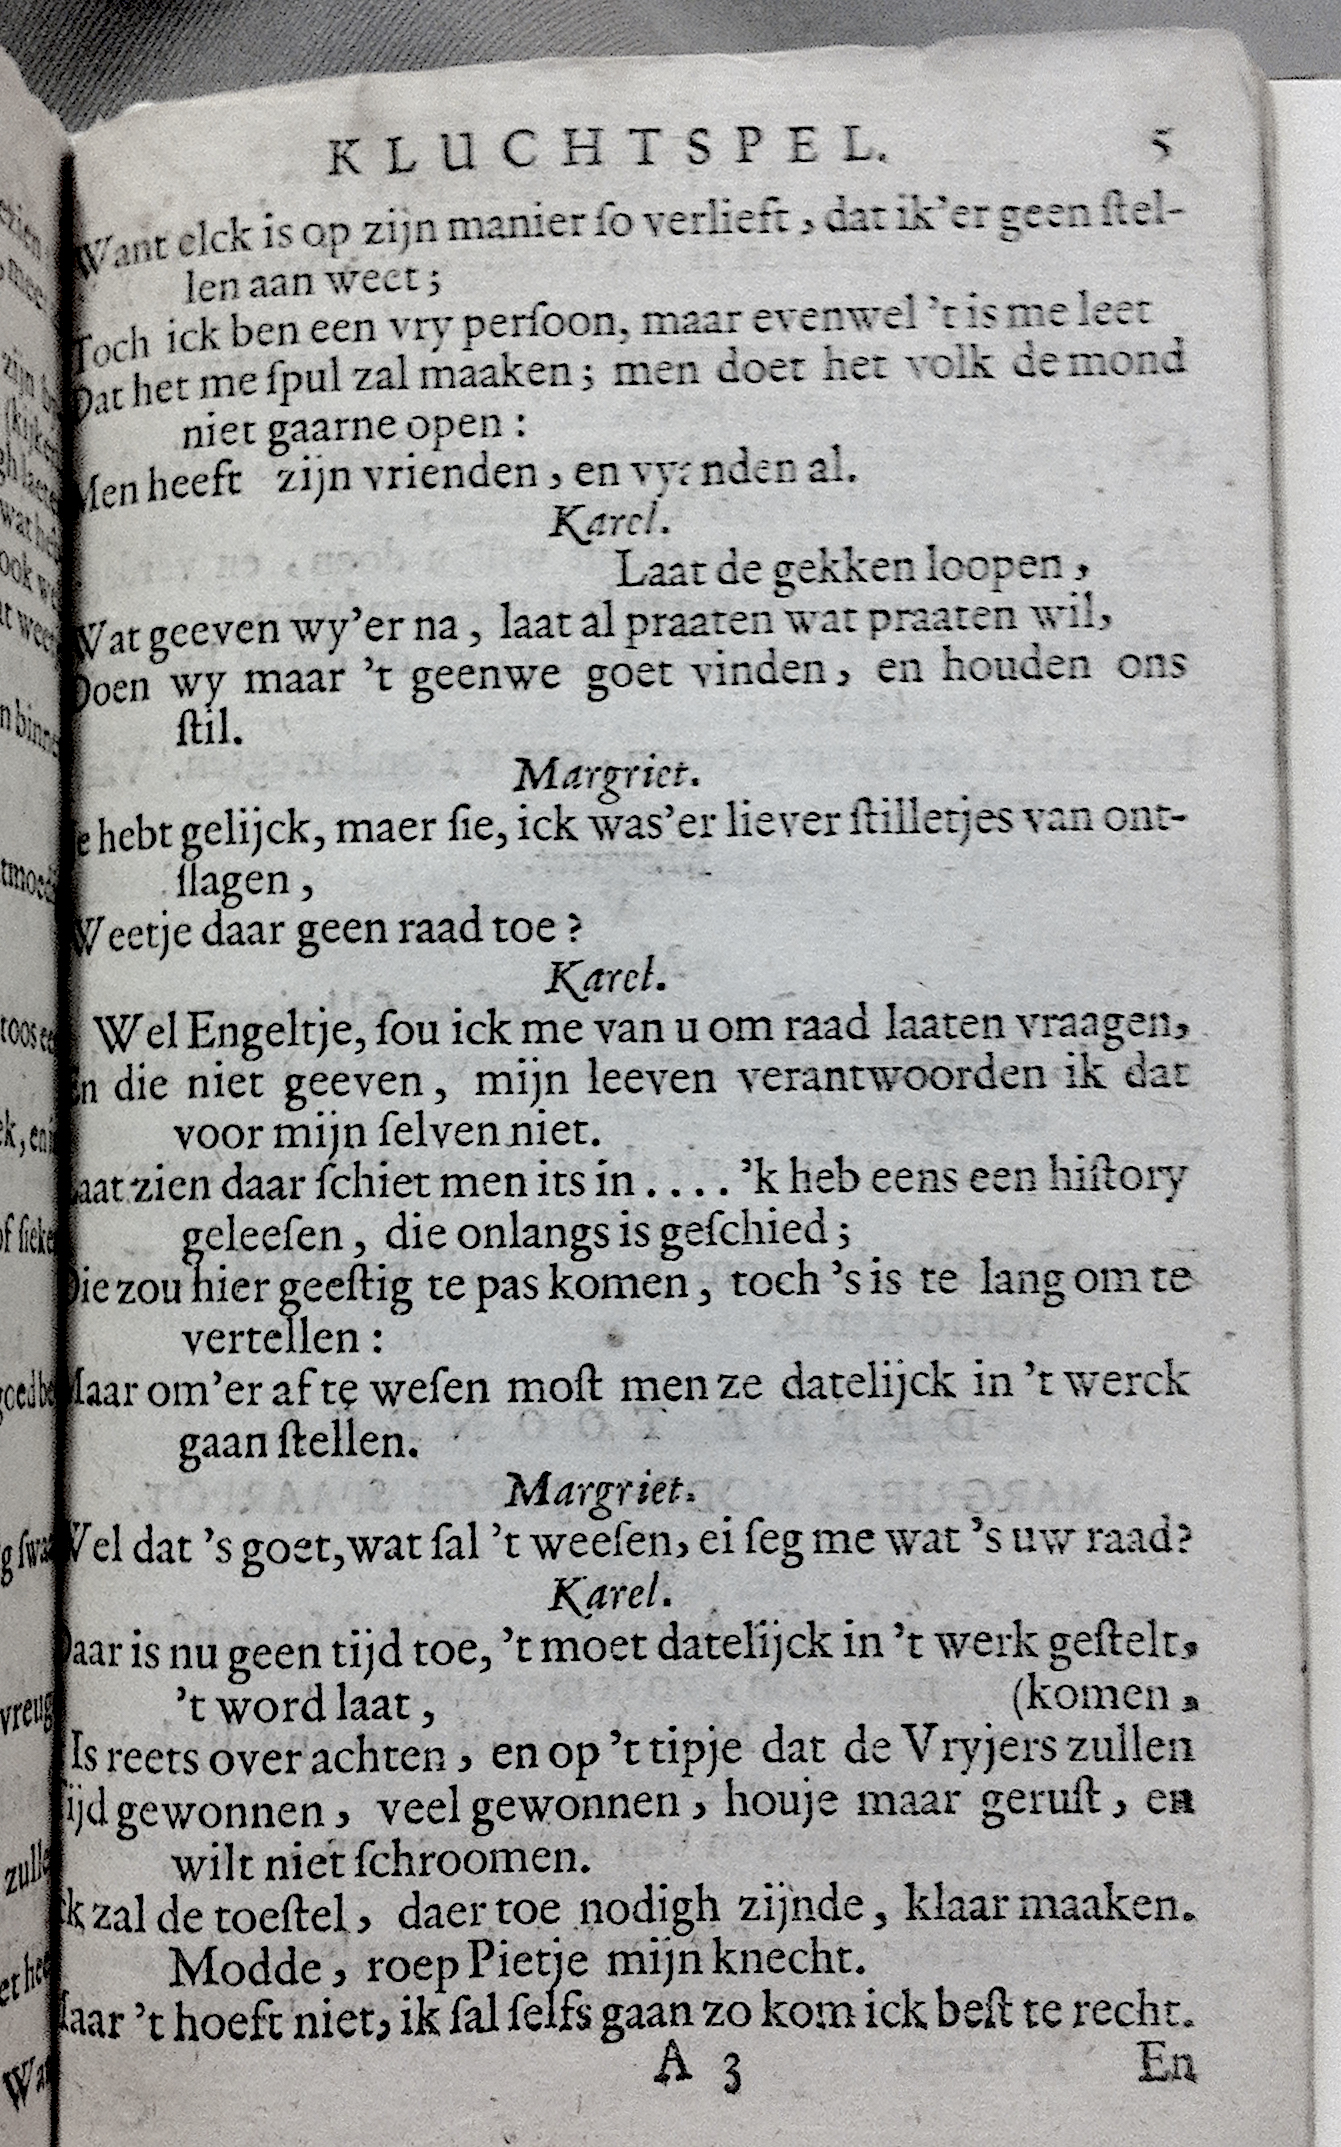 KLUCHTSPEL. 5
Want elck is op zijn manier ſo verlieft, dat ik'er geen ſtel-
len aan weet;
Toch ick ben een vry perſoon, maar evenwel 't is me leet
Dat het me ſpul zal maaken; men doet het volk de mond
niet gaarne open:
Men heeft zijn vrienden, en vyanden al.
Karel.
Laat de gekken loopen,
Wat geeven wy'er na, laat al praaten wat praaten wil,
Doen wy maar 't geenwe goet vinden, en houden ons
ſtil.
Margriet.
Je hebt gelijck, maer ſie, ick was'er liever ſtilletjes van ont-
ſlagen,
Weetje daar geen raad toe?
Karel.
Wel Engeltje, ſou ick me van u om raad laaten vraagen,
En die niet geeven, mijn leeven verantwoorden ik dat
voor mijn ſelven niet.
Laat zien daar ſchiet men its in.... 'k heb eens een hiſtory
geleeſen, die onlangs is geſchied;
Die zou hier geeſtig te pas komen, toch 's is te lang om te
vertellen:
Maar om'er af te weſen moſt men ze datelijck in 't werck
gaan ſtellen.
Margriet.
Wel dat 's goet, wat ſal 't weeſen, ei ſeg me wat 's uw raad?
Karel.
Daar is nu geen tijd toe, 't moet datelijck in 't werk geſtelt,
't word laat, (komen,
Is reets over achten, en op 't tipje dat de Vryjers zullen
Tijd gewonnen, veel gewonnen, houje maar geruſt, en
wilt niet ſchroomen.
Ik zal de toeſtel, daer toe nodigh zijnde, klaar maaken.
Modde, roep Pietje mijn knecht.
Maar 't hoeft niet, ik ſal ſelfs gaan zo kom ick beſt te recht.
A 3 En